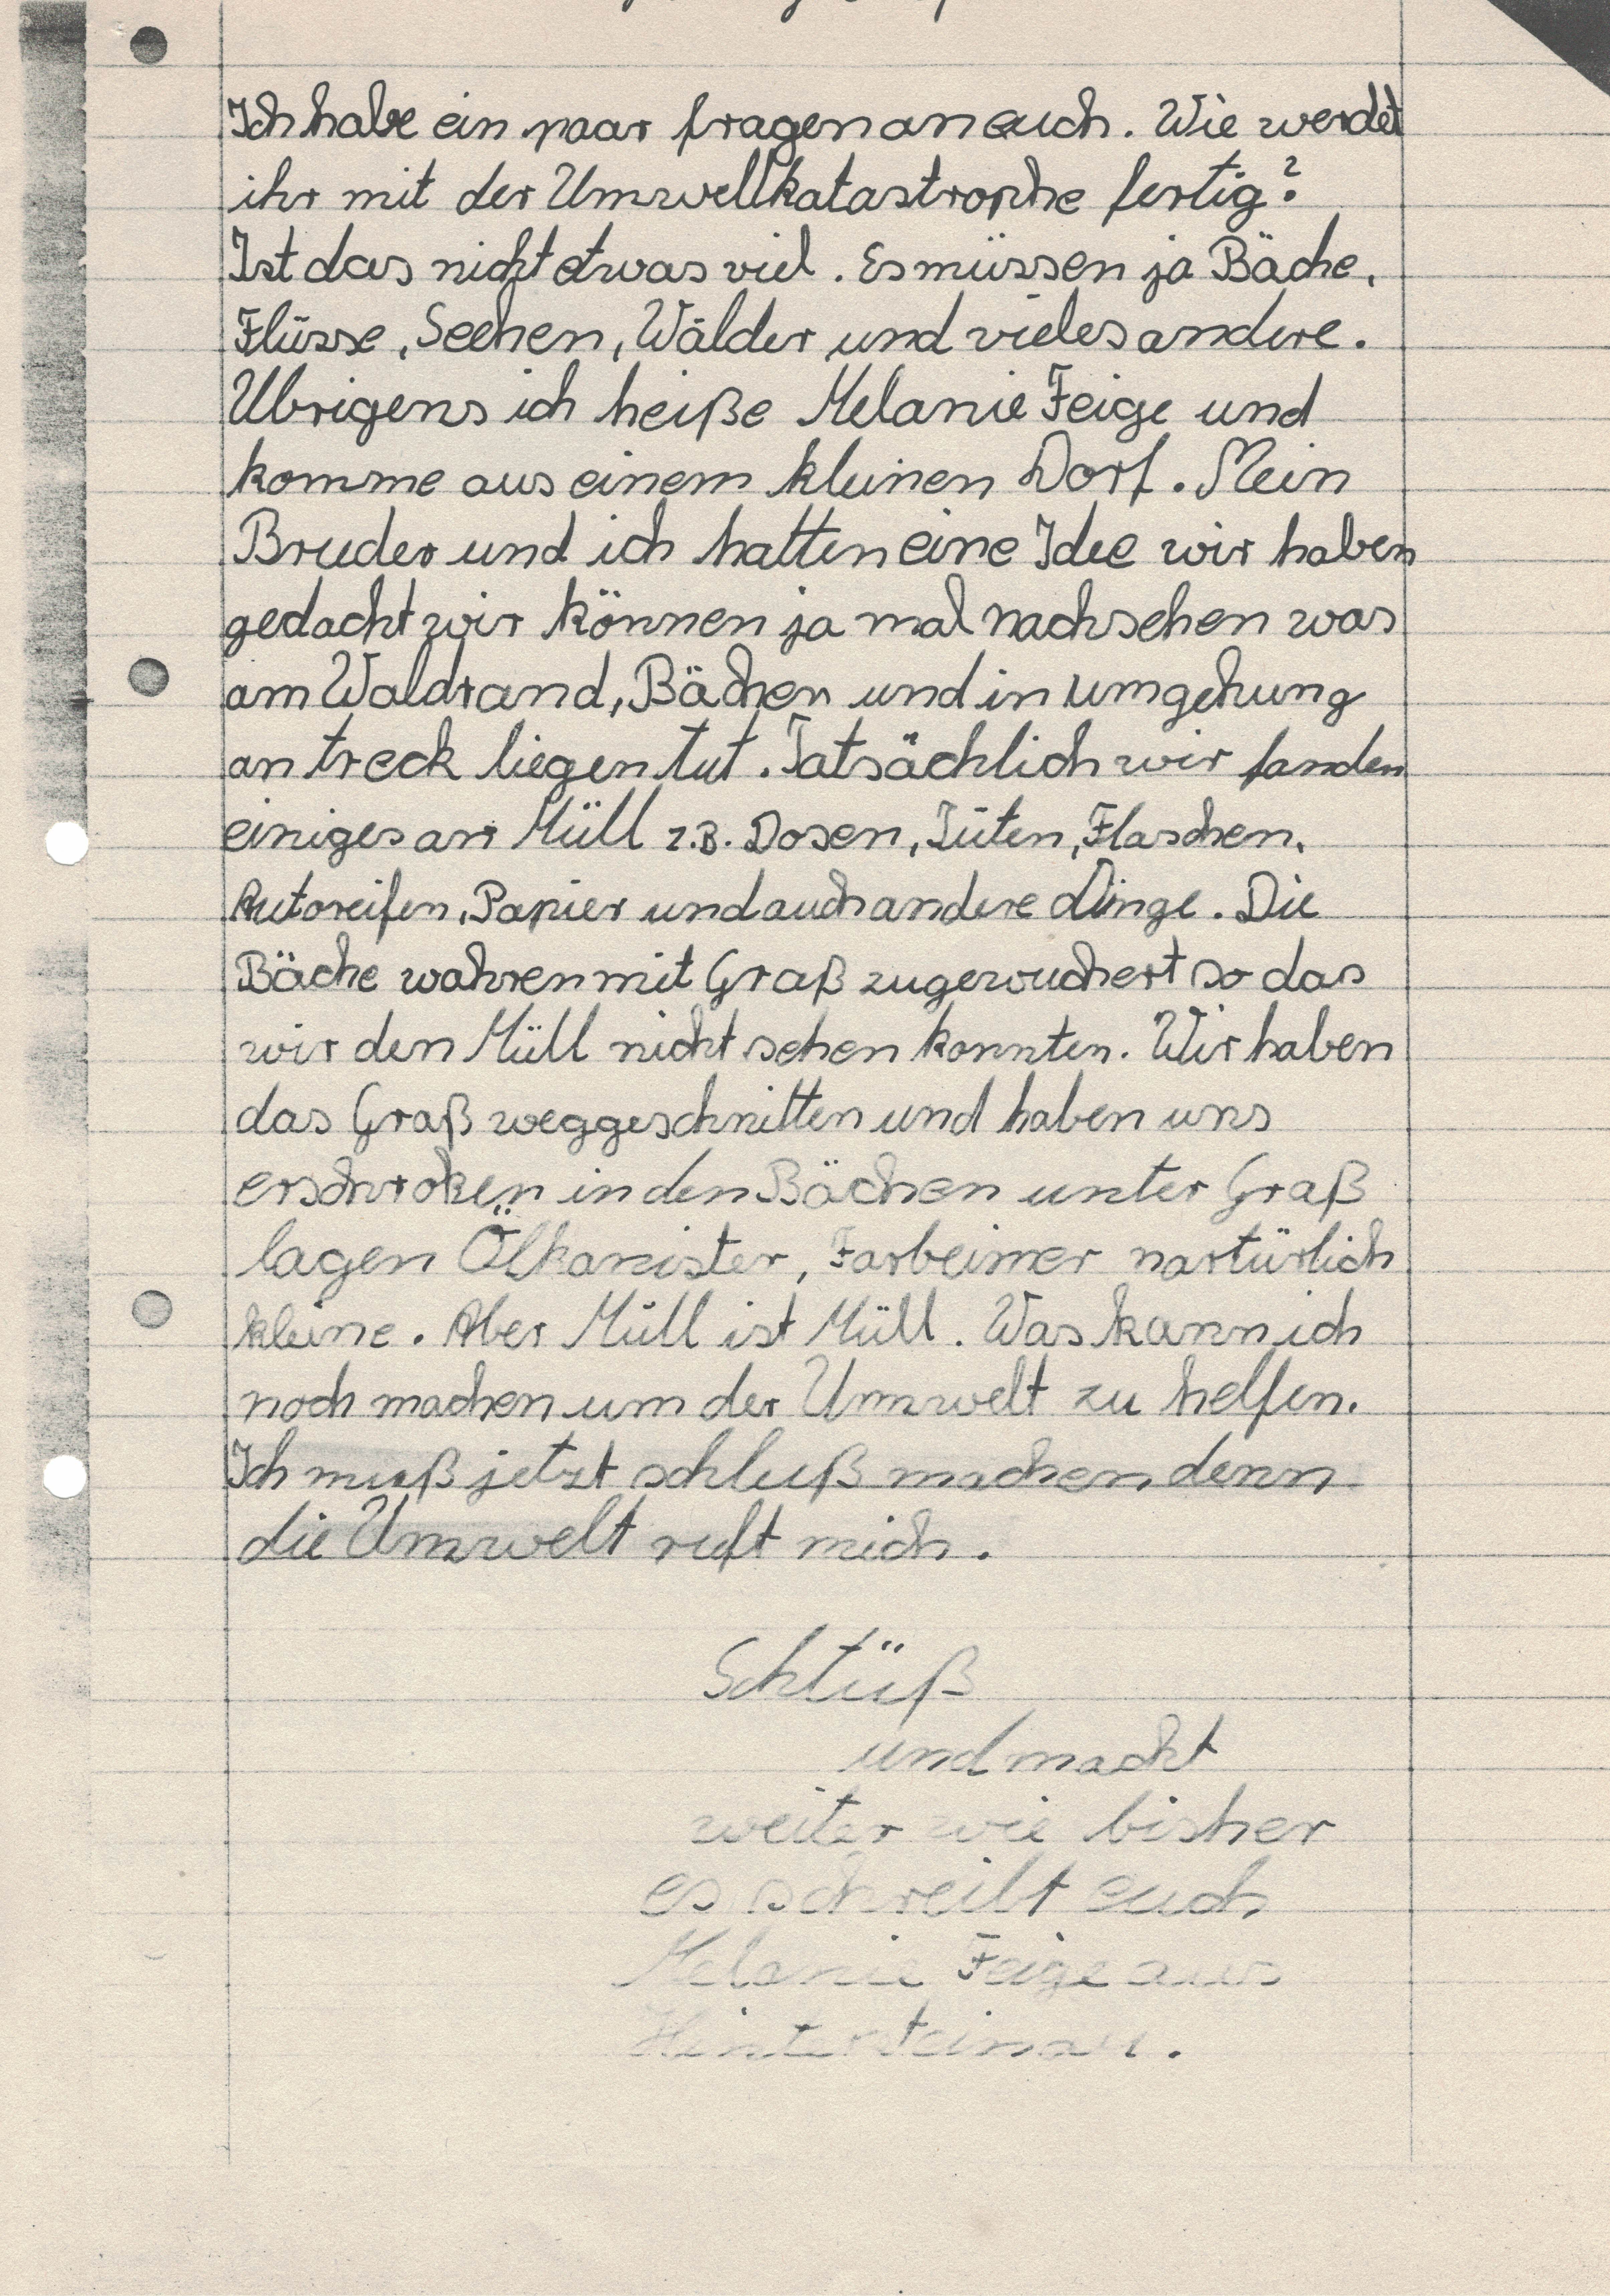 Ich habe ein paar fragen an euch. Wie werdet
ihr mit der Umwellkatastrophe fertig?
Ist das nicht etwas viel. Es müssen ja Bäche,
Flüsse, Seehen, Wälder und vieles andere.
Übrigens ich heiße Melanie Feige und
komme aus einem kleinen Dorf. Mein
Bruder und ich hatten eine Idee wir haben
gedacht wir können ja mal nachsehen was
am Waldrand, Bächen und in umgehung
an treck liegen tut. Tatsächlich wir fanden
einiges an Müll z.B. Dosen, Tüten, Flaschen,
Autoreifen, Papier und auch andere Dinge. Die
Bäche wahren mit Graß zugewuchert so das
wir den Müll nicht sehen konnten. Wir haben
das Graß weggeschnitten und haben uns
erschroken in den Bächen unter Graß
lagen Ölkanister, Farbeimer nartürlich
kleine. Aber Müll ist Müll. Was kann ich
noch machen um der Umwelt zu helfen.
Ich muß jetzt schluß machen denn
die Umwelt ruft mich.
Schtüß
und macht
weiter wie bisher
es schreibt euch
Melanie Feige aus
Hintersteinau.